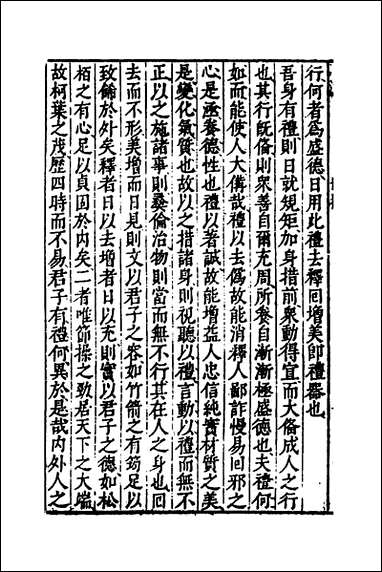 行何者為盛德日用此禮去釋回増美即禮器也
吾身有禮則日就規矩加身措前衆動得宜而大備成人之行
也其行既備則衆善自爾充周所養自漸漸極盛德也夫禮何
如而能使人大備哉禮以去偽故能消釋人鄙詐慢易回邪之
心是涵養德性也禮以著誠故能増益人忠信純實材質之美
是變化氣質也故以之措諸身則視聽以禮言動以禮而無不
正以之施諸事則彛倫治物則當而無不行其在人之身也回
去而不形美増而日見則文以君子之容如竹箭之有筠足以
致飾於外矣釋者日以去增者日以充則實以君子之德如松
栢之有心足以貞固於内矣二者唯節操之勁居天下之大端
故柯葉之茂歴四時而不易君子有禮何異於是哉内外人之